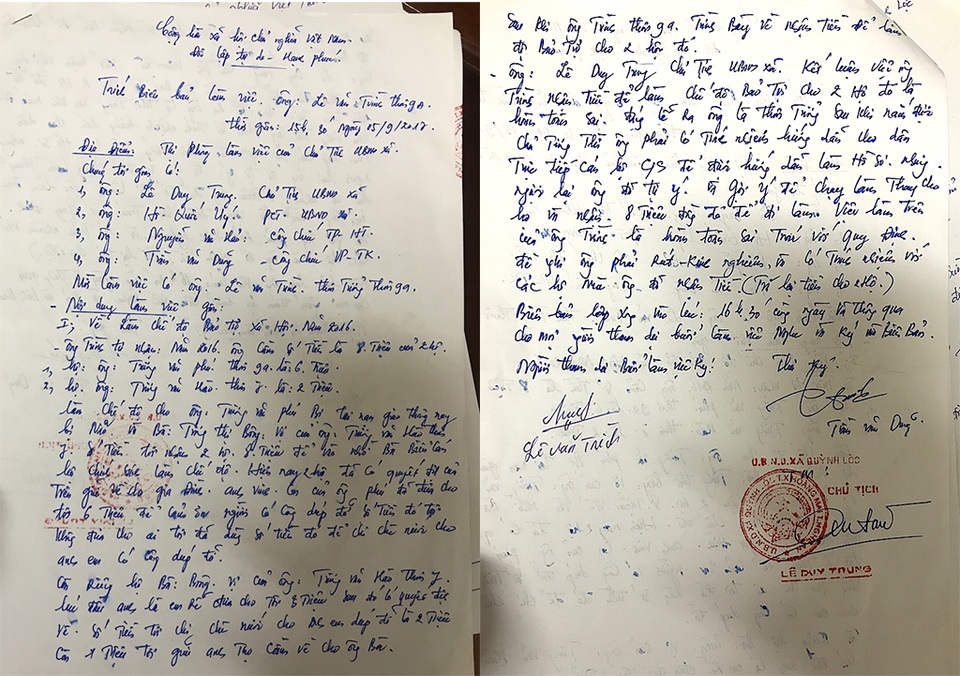 Cộng hòa xã hội chủ nghĩa Việt Nam.
Độc lập tự do - Hạnh phúc.
Trích Biên bản làm việc. ông: Lê văn Trình thôn 9a.
thời gian: 15h, 30 ngày 05/9/2017.
Địa Điểm: Tại phòng làm việc của Chủ Tịch UBND xã.
Chúng tôi gồm có:
1, ông: Lê Duy Trung. Chủ Tịch UBND xã
2, ông: Hồ Quốc PCT UBND xã.
3, ông: Nguyễn văn công chức TP-HT.
4, ông: Trần văn Dũng - công chức VP-TK.
Mời làm việc có ông. Lê văn Trình. thôn Trưởng thôn 9a.
- Nội dung làm việc gồm:
I, Về làm chế độ Bảo trợ xã hội. Năm 2016.
- ông Trình tự nhận: Năm 2016. ông Cầm số Tiền là 8 Triệu của 2 hộ.
1, hộ: ông: Trương văn phú thôn 9a là: 6 Triệu
2, hộ: ông: Trương văn Hào. thôn 7 là: 2 Triệu
làm chế độ cho ông: Trương văn phú Bị tai nạn giao thông nay
và Bà: Trương thị Bông: Vợ của ông: Trương văn Hào thôn
7. số Tiền tôi nhận 2 hộ. 8 Triệu để
làm chế độ. Hiện nay 2 hộ đã có quyết định của
Trên gửi về cho gia đình. anh con của ông phú đã đưa cho
tôi 6 Triệu để cảm ơn người có công giúp đỡ số Tiền đó tôi
không đưa cho ai tôi đã dùng số tiền đó để chi chè nước cho
anh em có công giúp đỡ.
Còn Riêng hộ Bà: Bông. Vợ của ông: Trương văn Hào thôn 7.
lúc đầu anh là em Rể đưa cho Tôi 3 Triệu sau đó có quyết định
Về. số Tiền tôi chi chè nước cho anh em giúp đỡ là 2 Triệu
Còn 1 Triệu tôi gửi anh Thọ cầm về cho ông Bà.
Sau khi ông Trình thôn 9a. Trình Bày về nhận Tiền để làm
độ Bảo Trợ cho 2 hộ đó.
- ông: Lê Duy Trung Chủ Tịch UBND xã. Kết luận việc ông
Trình nhận Tiền để làm Chế độ Bảo Trợ cho 2 Hộ đó là
hoàn toàn sai. đúng lẽ ra ông là thôn Trưởng sau khi nắm được
Chủ Trương thì ông phải có Trách nhiệm hướng dẫn cho dân
Trực tiếp cán bộ CS để được hướng dẫn làm Hồ sơ. nhưng.
ngược lại ông đã tự ý. và Gợi ý để chạy làm Thay cho
họ và nhận. 8 Triệu đồng đó để đi làm. Việc làm trên
của ông Trình. là hoàn toàn sai Trái với quy định.
đề nghị ông phải Rút-Kinh nghiệm, và có Trách nhiệm với
các hộ mà ông đã nhận Tiền (Trả lại tiền cho 2 hộ.)
Biên bản lập xong vào lúc: 16h,30 cùng ngày và thông qua
cho mọi người tham dự buổi làm việc Nghe và Ký vào Biên Bản.
Người tham dự Buổi làm việc ký:
Thư ký
Lê Văn Trình
Trần văn Dũng
U.B.N.D.XÃ QUỲNH LỘC
CHỦ TỊCH
LÊ DUY TRUNG